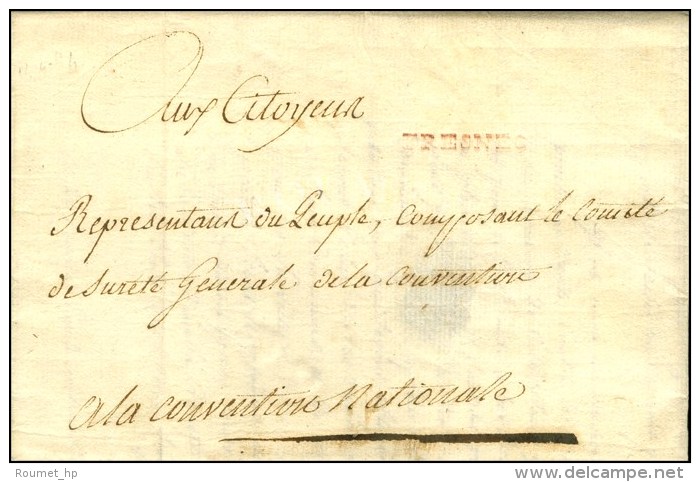 Aux Citoyens
Representans du Peuple, composant le Comité
de Sureté Generale de la Convention
a la Convention Nationale
Roumet_hp
delcampe.net